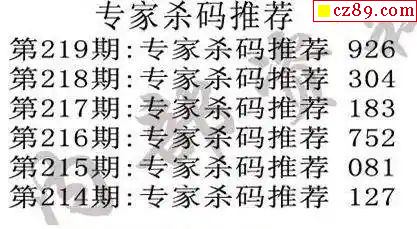 cz89.com
专家杀码推荐
第219期:专家杀码推荐 926
第218期:专家杀码推荐 304
第217期:专家杀码推荐 183
第216期:专家杀码推荐 752
第215期:专家杀码推荐 081
第214期:专家杀码推荐 127